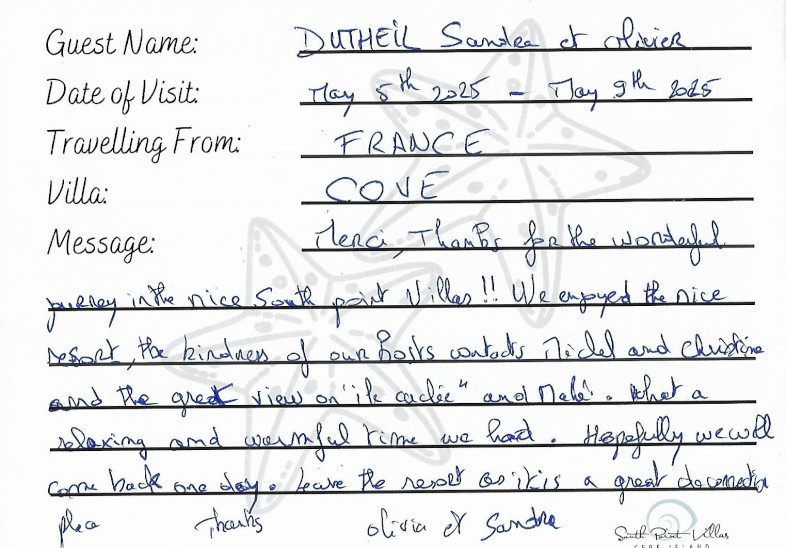 Guest Name: DUTHEIL Sandra et olivier
Date of Visit: May 5th 2025 - May 9th 2025
Travelling From: FRANCE
Villa: COVE
Message: Merci, Thanks for the wonderful
journey in the nice South point Villas!! We enjoyed the nice
resort, the kindness of our hosts contacts Michel and Christine
and the great view on "ile cachée" and Mahé. What a
relaxing and warmful time we had. Hopefully we will
come back one day. Leave the resort as it is a great deconnection
place Thanks olivier et Sandra
South Point Villas
CERF ISLAND